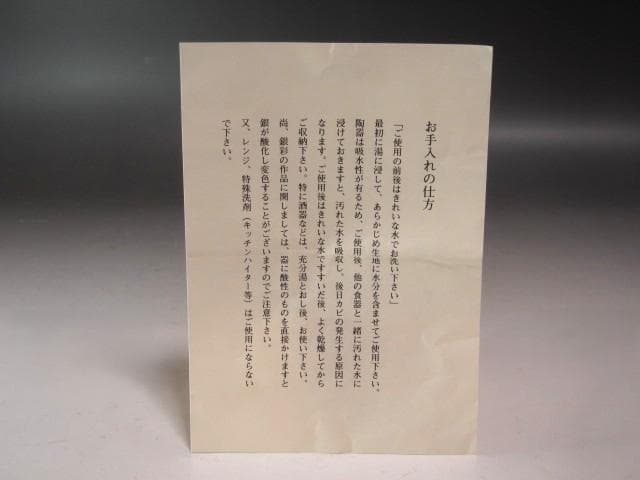 お手入れの仕方
「ご使用の前後はきれいな水でお洗い下さい」
最初に湯に浸して、あらかじめ生地に水分を含ませてご使用下さい。
陶器は吸水性が有るため、ご使用後、他の食器と一緒に汚れた水に
浸けておきますと、汚れた水を吸収し、後日カビの発生する原因に
なります。ご使用後はきれいな水ですすいだ後、よく乾燥してから
ご収納下さい。特に酒器などは、充分湯とおし後、お使い下さい。
尚、銀彩の作品に関しましては、器に酸性のものを直接かけますと
銀が酸化し変色することがございますのでご注意下さい。
又、レンジ、特殊洗剤（キッチンハイター等）はご使用にならない
で下さい。